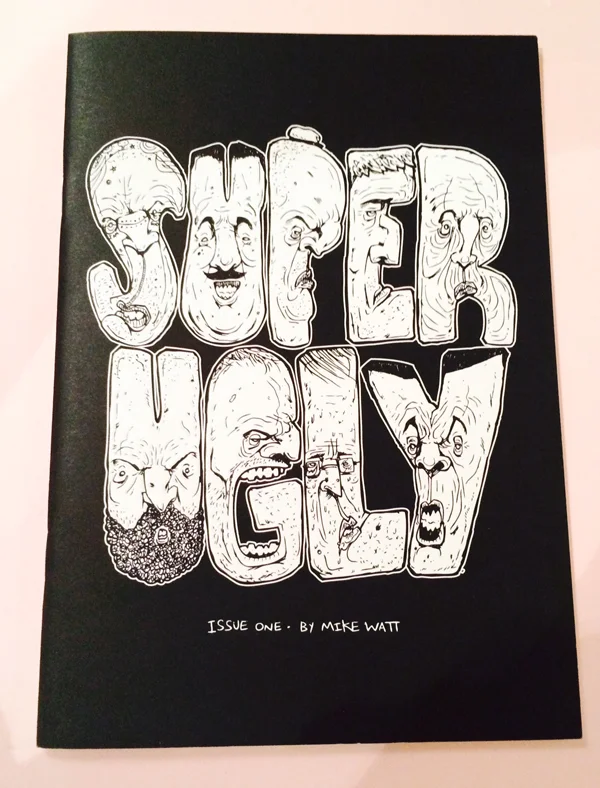 SUPER
UGLY
ISSUE ONE · BY MIKE WATT